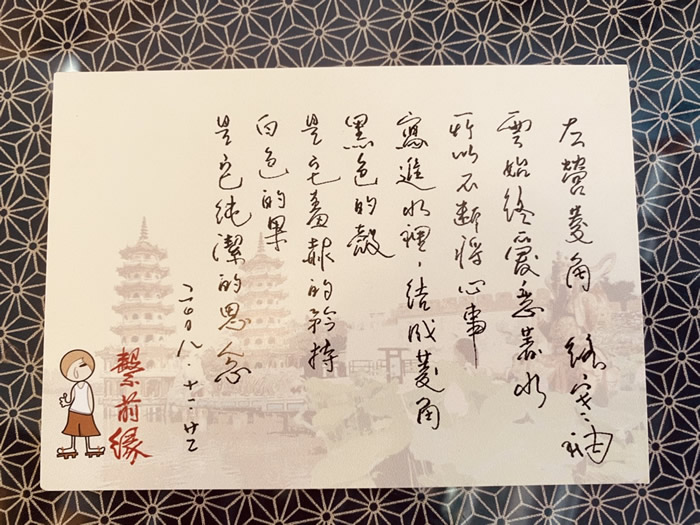 左營菱角　路寒袖
雲始終愛戀著水
所以不斷將心事
寫進水裡，結成菱角
黑色的殼
是它羞赧的矜持
白色的果
是它純潔的思念
二〇〇八.十二.廿二
繫前緣